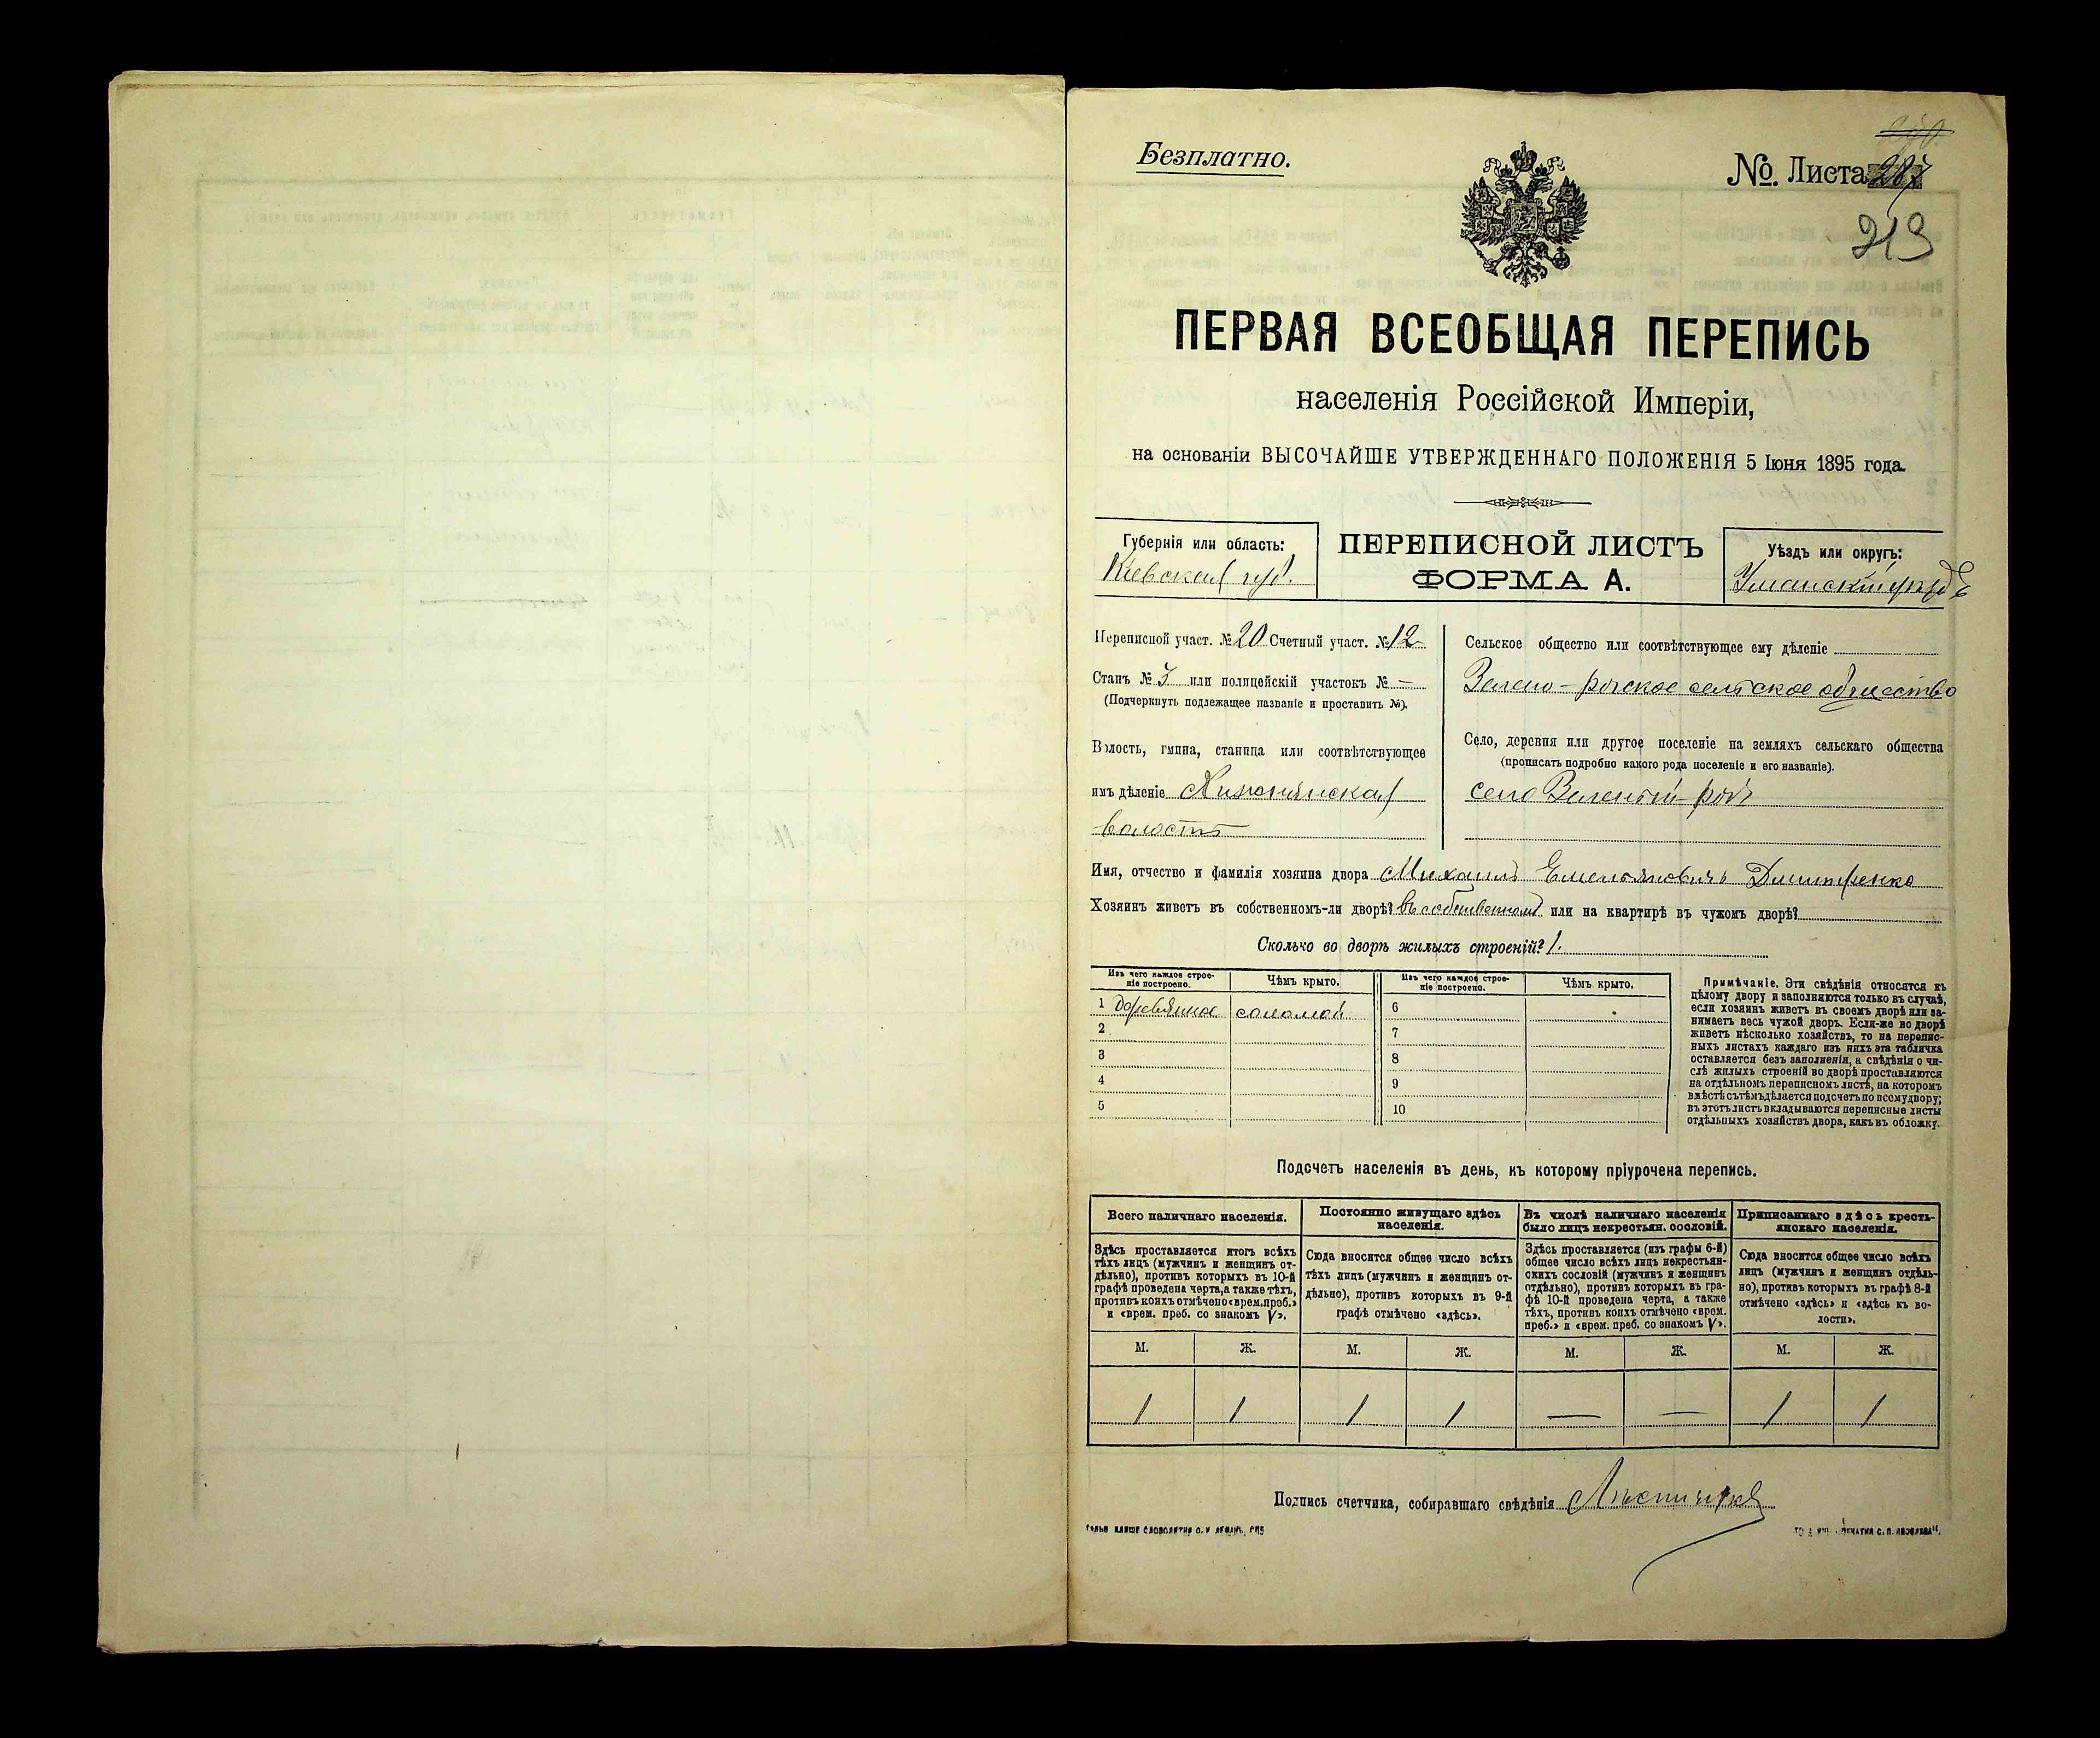 Безплатно.
№. Листа 287
213
ПЕРВАЯ ВСЕОБЩАЯ ПЕРЕПИСЬ
населенія Россійской Имперіи,
на основаніи ВЫСОЧАЙШЕ УТВЕРЖДЕННАГО ПОЛОЖЕНІЯ 5 Іюня 1895 года.
Губернія или область:
Кіевская губ.
ПЕРЕПИСНОЙ ЛИСТЪ
ФОРМА А.
Уѣздъ или округъ:
Уманскій уѣздъ
Переписной участ. № 20 Счетный участ. № 12
Станъ № 5 или полицейскій участокъ № —
(Подчеркнуть подлежащее названіе и проставить №).
Волость, гмина, станица или соотвѣтствующее
имъ дѣленіе Хижнянская
волость
Сельское общество или соотвѣтствующее ему дѣленіе
Зелено-рогское сельское общество
Село, деревня или другое поселеніе на земляхъ сельскаго общества
(прописать подробно какого рода поселеніе и его названіе).
село Зеленый-рогъ
Имя, отчество и фамилія хозяина двора Михаилъ Емельяновичъ Дмитренко
Хозяинъ живетъ въ собственномъ-ли дворѣ? въ собственномъ или на квартирѣ въ чужомъ дворѣ?
Сколько во дворѣ жилыхъ строеній? 1.
Изъ чего каждое строе-
ніе построено.
Чѣмъ крыто.
Изъ чего каждое строе-
ніе построено.
Чѣмъ крыто.
1 деревянное соломой
2
3
4
5
6
7
8
9
10
Примѣчаніе. Эти свѣдѣнія относятся къ
цѣлому двору и заполняются только въ случаѣ,
если хозяинъ живетъ въ своемъ дворѣ или за-
нимаетъ весь чужой дворъ. Если-же во дворѣ
живетъ нѣсколько хозяйствъ, то на перепис-
ныхъ листахъ каждаго изъ нихъ эта табличка
оставляется безъ заполненія, а свѣдѣнія о чи-
слѣ жилыхъ строеній во дворѣ проставляются
на отдѣльномъ переписномъ листѣ, на которомъ
вмѣстѣ съ тѣмъ дѣлается подсчетъ по всему двору;
въ этотъ листъ вкладываются переписные листы
отдѣльныхъ хозяйствъ двора, какъ въ обложку.
Подсчетъ населенія въ день, къ которому пріурочена перепись.
Всего наличнаго населенія.
Здѣсь проставляется итогъ всѣхъ
тѣхъ лицъ (мужчинъ и женщинъ от-
дѣльно), противъ которыхъ въ 10-й
графѣ проведена черта, а также тѣхъ,
противъ коихъ отмѣчено «врем. преб.»
и «врем. преб. со знакомъ V».
Постоянно живущаго здѣсь
населенія.
Сюда вносится общее число всѣхъ
тѣхъ лицъ (мужчинъ и женщинъ от-
дѣльно), противъ которыхъ въ 9-й
графѣ отмѣчено «здѣсь».
Въ числѣ наличнаго населенія
было лицъ некрестьян. сословій.
Здѣсь проставляется (изъ графы 6-й)
общее число всѣхъ лицъ некрестьян-
скихъ сословій (мужчинъ и женщинъ
отдѣльно), противъ которыхъ въ гра-
фѣ 10-й проведена черта, а также
тѣхъ, противъ коихъ отмѣчено «врем.
преб.» и «врем. преб. со знакомъ V».
Приписаннаго здѣсь кресть-
янскаго населенія.
Сюда вносится общее число всѣхъ
лицъ (мужчинъ и женщинъ отдѣль-
но), противъ которыхъ въ графѣ 8-й
отмѣчено «здѣсь» и «здѣсь къ во-
лости».
М. Ж. М. Ж. М. Ж. М. Ж.
1 1 1 1 — — 1 1
Подпись счетчика, собиравшаго свѣдѣнія